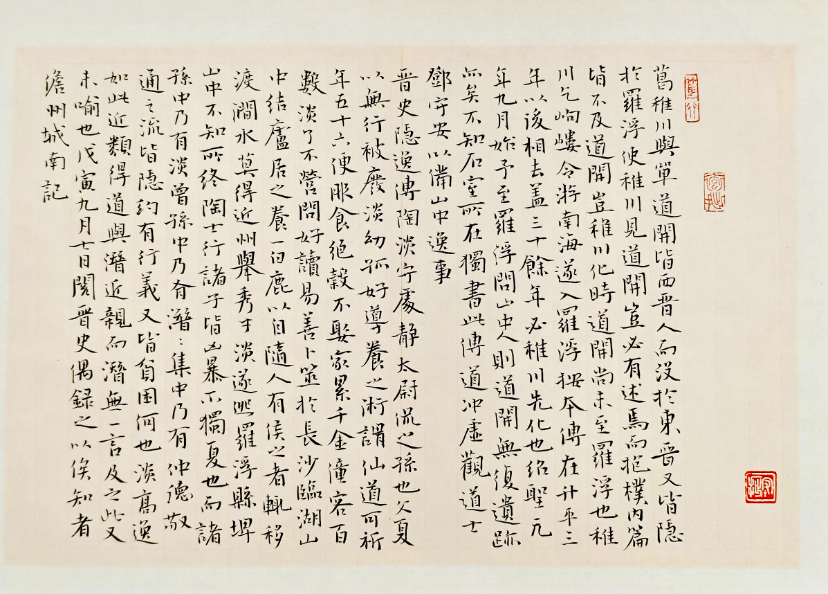 葛稚川與單道開皆西晉人而沒於東晉又皆隱
於羅浮使稚川見道開豈必有述焉而抱樸內篇
皆不及道開豈稚川化時道開尚未至羅浮也稚
川乞岣嶁令游南海遂入羅浮按本傳在升平三
年以後相去盖三十餘年必稚川先化也紹聖元
年九月始予至羅浮問山中人則道開無復遺跡
矣不知石室所在獨書此傳遺冲虛觀道士
鄧守安以備山中逸事
晉史隱逸傳陶淡字處静太尉侃之孫也父夏
以無行被廢淡幼孤好導養之術謂仙道可祈
年五十六便服食絕穀不娶家累千金僮客百
數淡了不營問好讀易善卜筮於長沙臨湖山
中結廬居之養一白鹿以自隨人有侯之者輒移
渡澗水莫得近州舉秀才淡遂逃羅浮縣埤
山中不知所終陶士行諸子皆凶暴不獨夏也而諸
孫中乃有淡曾孫中乃有潛潛集中乃有仲德敬
通之流皆隱約有行義又皆貧困何也淡高逸
如此近類得道與潛近親而潛無一言及之此又
未喻也戊寅九月七日閱晉史偶錄之以俟知者
儋州城南記